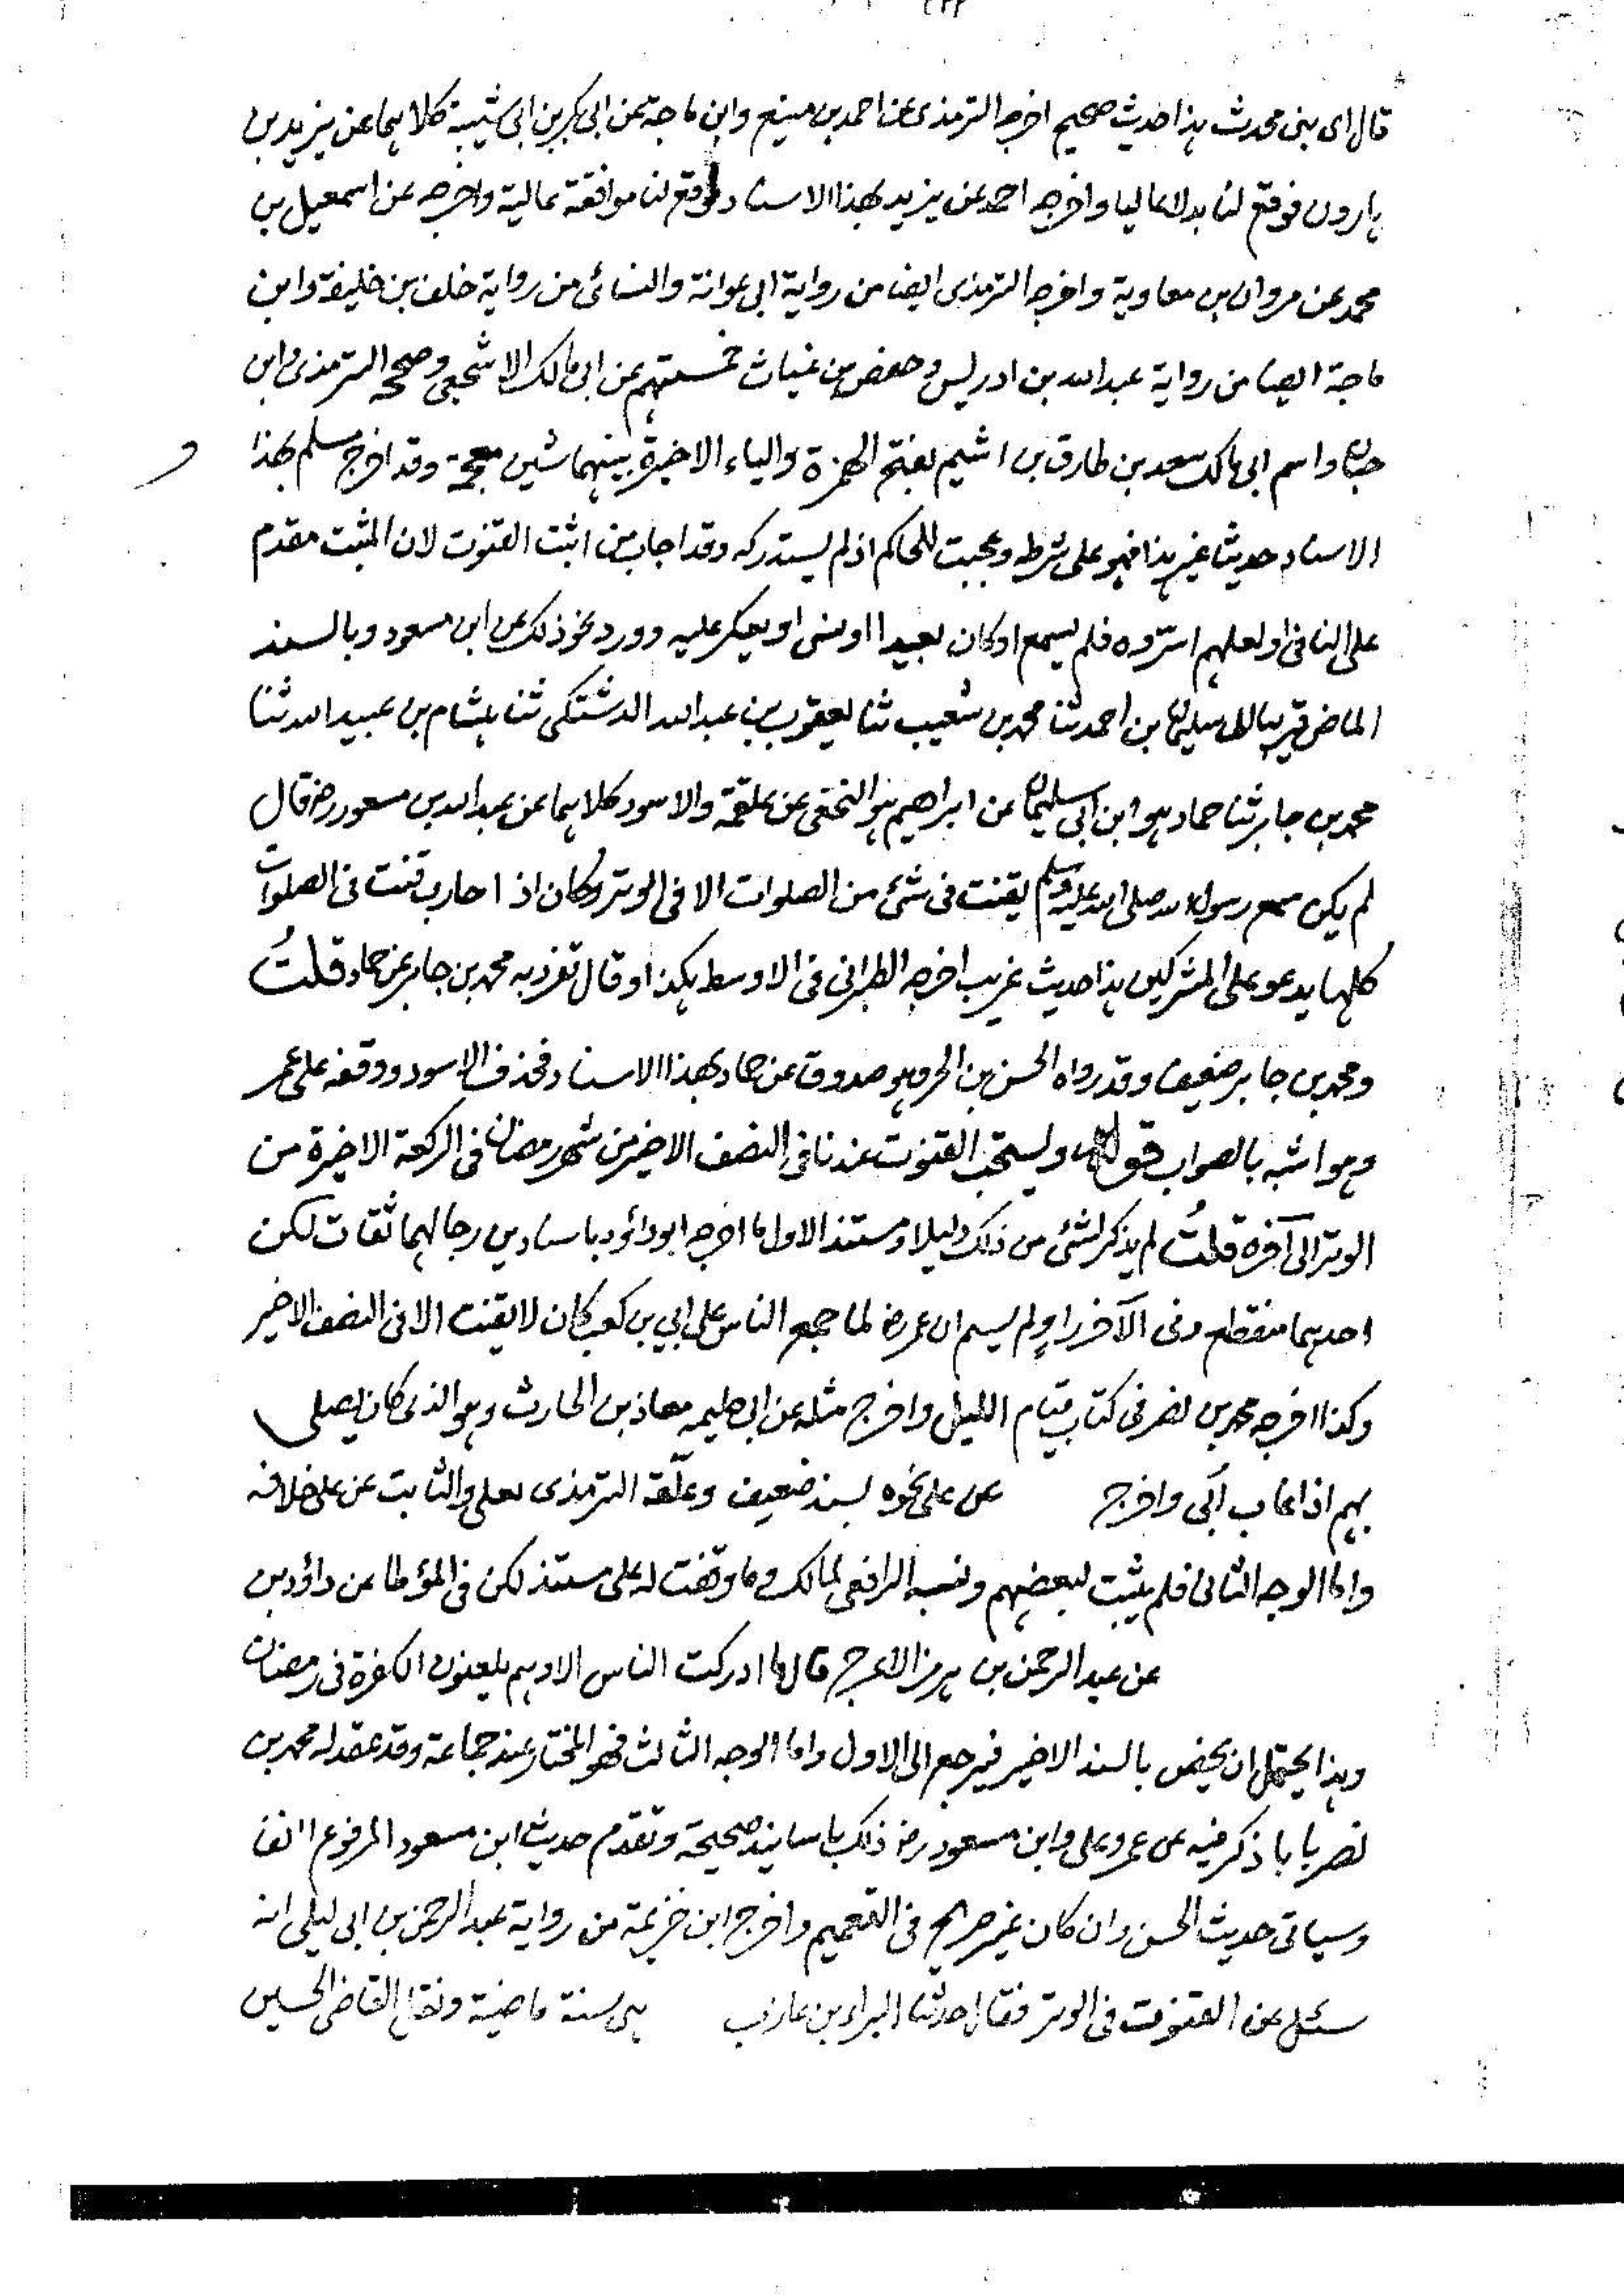 قال اى بنى محدث هذا حديث صحيح اخرجه الترمذى عن احمد بن منيع وابن ماجة عن ابى بكر بن ابى شيبة كلاهما عن يزيد بن
هارون فوقع لنا بدلا عاليا واخرجه احمد عن يزيد بهذا الاسناد فوقع لنا موافقة عالية واخرجه عن اسمعيل بن
محمد عن مروان بن معاوية واخرجه الترمذى ايضا من رواية ابى عوانة والنسائى من رواية خلف بن خليفة وابن
ماجة ايضا من رواية عبد الله بن ادريس وحفص بن غياث خمستهم عن ابى مالك الاشجعى وصححه الترمذى وابن
حبان واسم ابى مالك سعد بن طارق بن اشيم بفتح الهمزة والياء الاخيرة بينهما شين معجمة وقد اخرج مسلم بهذا
الاسناد حديثا غير هذا فهو على شرطه وعجبت للحاكم اذ لم يستدركه وقد اجاب من اثبت القنوت لان المثبت مقدم
على النافى او لعلهم اسروه فلم يسمع او كان بعيدا او نسى او يعكر عليه وورد نحو ذلك عن ابن مسعود وبالسند
الماضى قريبا الى سليمان بن احمد ثنا محمد بن شعيب ثنا يعقوب بن عبد الله الدشتكى ثنا هشام بن عبيد الله ثنا
محمد بن جابر ثنا حماد هو ابن ابى سليمان عن ابراهيم هو النخعى عن علقمة والاسود كلاهما عن عبد الله بن مسعود رض قال
لم يكن رسول الله صلى الله عليه وسلم يقنت فى شئ من الصلوات الا فى الوتر وكان اذا حارب قنت فى الصلوات
كلها يدعو على المشركين هذا حديث غريب اخرجه الطبرانى فى الاوسط هكذا وقال تفرد به محمد بن جابر عن حماد قلتُ
ومحمد بن جابر ضعيف وقد رواه الحسن بن الحر وهو صدوق عن حماد بهذا الاسناد فحذف الاسود ووقفه على عمر
وهو اشبه بالصواب قوله ويستحب القنوت عندنا فى النصف الاخير من شهر رمضان فى الركعة الاخيرة من
الوتر الى آخره قلتُ لم يذكر لشئ من ذلك دليلا ومستند الاول ما اخرجه ابوداؤد باسنادين رجالهما ثقات لكن
احدهما منقطع وفى الآخر راوٍ لم يسم ان عمر رض لما جمع الناس على ابي بن كعب كان لا يقنت الا فى النصف الاخير
وكذا اخرجه محمد بن نصر فى كتاب قيام الليل واخرج مثله عن ابى حليمه معاذ بن الحارث وهو الذى كان يصلى
بهم اذا غاب ابَى واخرج عن على نحوه بسند ضعيف وعلّقه الترمذى لعلى والثابت عن على خلافه
واما الوجه الثانى فلم يثبت لبعضهم ونسبه الرافعى لمالك وما وقفت له على مستند لكن فى المؤطا عن داؤد بن
عن عبد الرحمن بن هرمز الاعرج قال ما ادركت الناس الا وهم يلعنون الكفرة فى رمضان
وهذا يحتمل ان يخص بالسند الاخير فيرجع الى الاول واما الوجه الثالث فهو المختار عند جماعة وقد عقد له محمد بن
نصر بابا ذكر فيه عن عمر وعلى وابن مسعود رض ذلك باسانيد صحيحة وتقدم حديث ابن مسعود المرفوع انفا
وسياتى حديث الحسن وان كان غير صريح فى التعميم واخرج ابن خزيمة من رواية عبد الرحمن بن ابى ليلى انه
سئل عن القنوت فى الوتر فقال حدثنا البراء بن عازب هى سنة ماضية ونقل القاضى الحسين